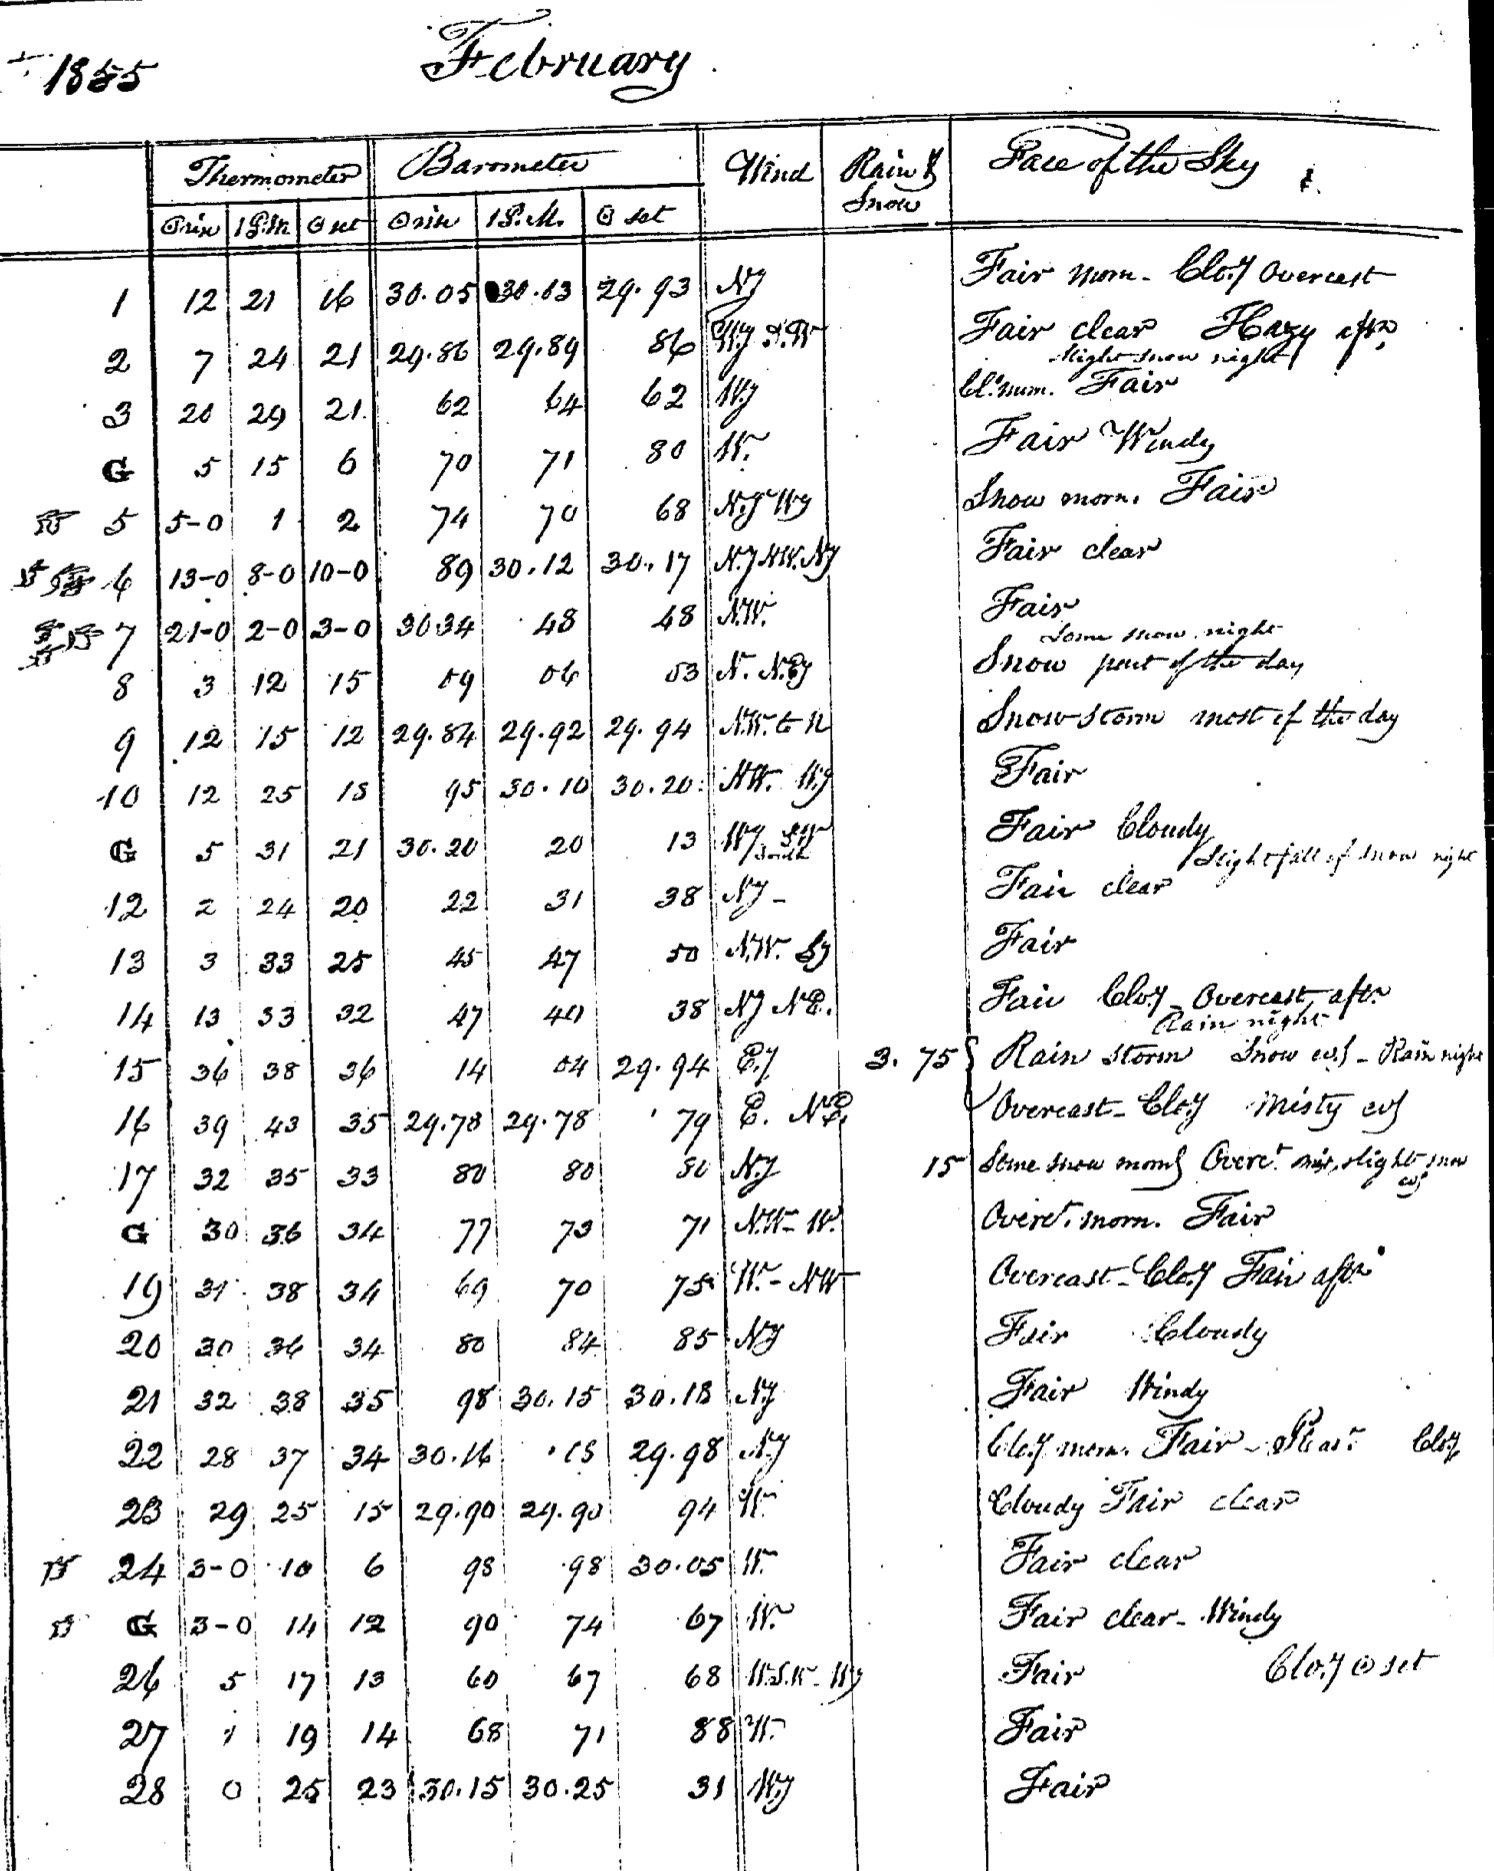 1855 February
Thermometer Barometer Wind Rain & Snow Face of the Sky &.
⊙ rise 1 P.M. ⊙ set ⊙ rise 1 P.M. ⊙ set
1 12 21 16 30.05 30.03 29.93 Ny Fair morn - Clo.y Overcast
2 7 24 21 29.86 29.89 86 Wy S.W Fair clear Hazy aftn.
slight snow night
3 20 29 21 62 64 62 Wy Cl.y morn. Fair
G 5 15 6 70 71 80 W. Fair Windy
5 5-0 1 2 74 70 68 N.y Wy Snow morn. Fair
6 13-0 8-0 10-0 89 30.12 30.17 N.y N.W. Ny Fair clear
7 21-0 2-0 3-0 30 34 48 48 N.W. Fair
Some snow night
8 3 12 15 09 06 03 N. N.Ey Snow part of the day
9 12 15 12 29.84 29.92 29.94 N.W. to N Snow storm most of the day
10 12 25 18 95 30.10 30.20 N.W. Wy Fair
G 5 31 21 30.20 20 13 Wy S.W South Fair Cloudy
Slight fall of snow night
12 2 24 20 22 31 38 Ny - Fair clear
13 3 33 25 45 47 50 N.W. Sy Fair
14 13 33 32 47 40 38 Ny N.E. Fair Clo.y - Overcast aftn.
Rain night
15 36 38 36 14 04 29.94 E.y 3.75 Rain storm Snow evg - Rain night
16 39 43 35 29.78 29.78 79 E. N.E. Overcast - Clo.y Misty evg
17 32 35 33 80 80 80 N.y 15 Some snow morng Overct. slight snow evg
G 30 36 34 77 73 71 N.W - W. Overct. morn. Fair
19 31 38 34 69 70 75 W. - NW Overcast - Clo.y Fair aftn.
20 30 36 34 80 84 85 Ny Fair Cloudy
21 32 38 35 98 30.15 30.18 N.y Fair Windy
22 28 37 34 30.16 .15 29.98 N.y Clo.y morn. Fair - Pleast. Clo.y
23 29 25 15 29.90 29.90 94 W. Cloudy Fair clear
24 3-0 10 6 98 98 30.05 W. Fair clear
G 3-0 14 12 90 74 67 W. Fair clear - Windy
26 5 17 13 60 67 68 W.S.W - Wy Fair Clo.y ⊙ set
27 1 19 14 68 71 88 W. Fair
28 0 25 23 30.15 30.25 31 W.y Fair